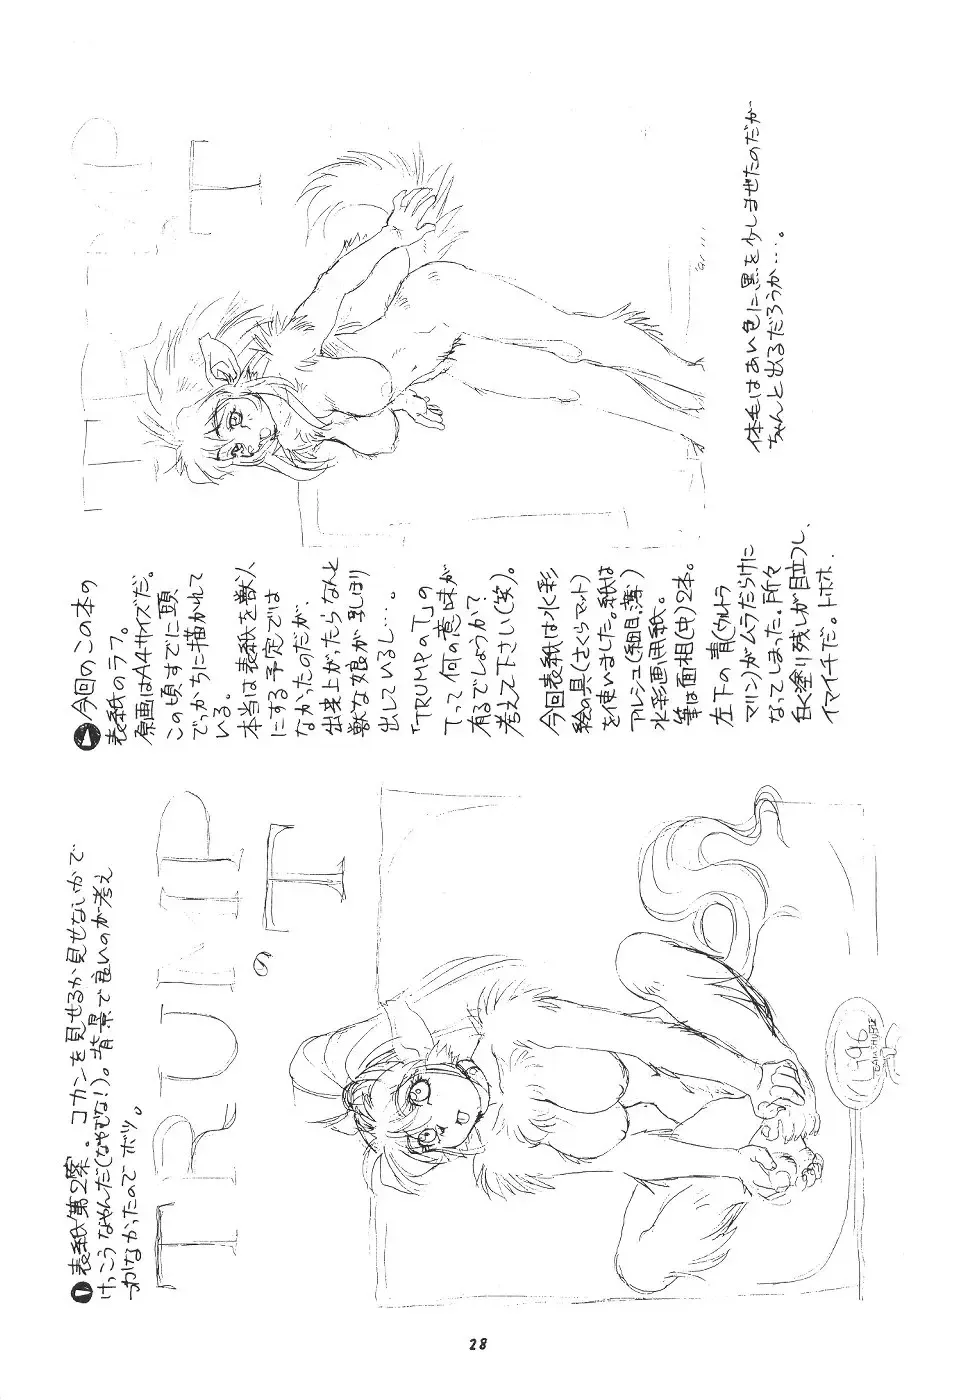 表紙第2案。コカンを見せるか見せないかで
けっこうなやんだ(なやむな!)。背景で良いのが考え
つかなかったのでボツ。
TRUMP
の
T
今回のこの本の
表紙のラフ。
原画はA4サイズだ。
この頃すでに頭
でっかちに描かれて
いる。
本当は表紙を獣人
にする予定では
なかったのだが、
出来上がったらなんと
獣な娘が乳ほり
出しているし…。
「TRUMPのT」の
Tって何の意味が
有るでしょうか?
考えて下さい(笑)。
今回表紙は水彩
絵の具(さくらマット)
を使いました。紙は
アルシュ(細目,薄)
水彩画用紙。
筆は面相(中)2本。
左下の青(ウルトラ
マリン)がムラだらけに
なってしまった。所々
白く塗り残しが目立つし、
イマイチだ。トホホ.
TRUMP
T
体毛はあい色に、黒を少しまぜたのだが
ちゃんと出るだろうか…。
28